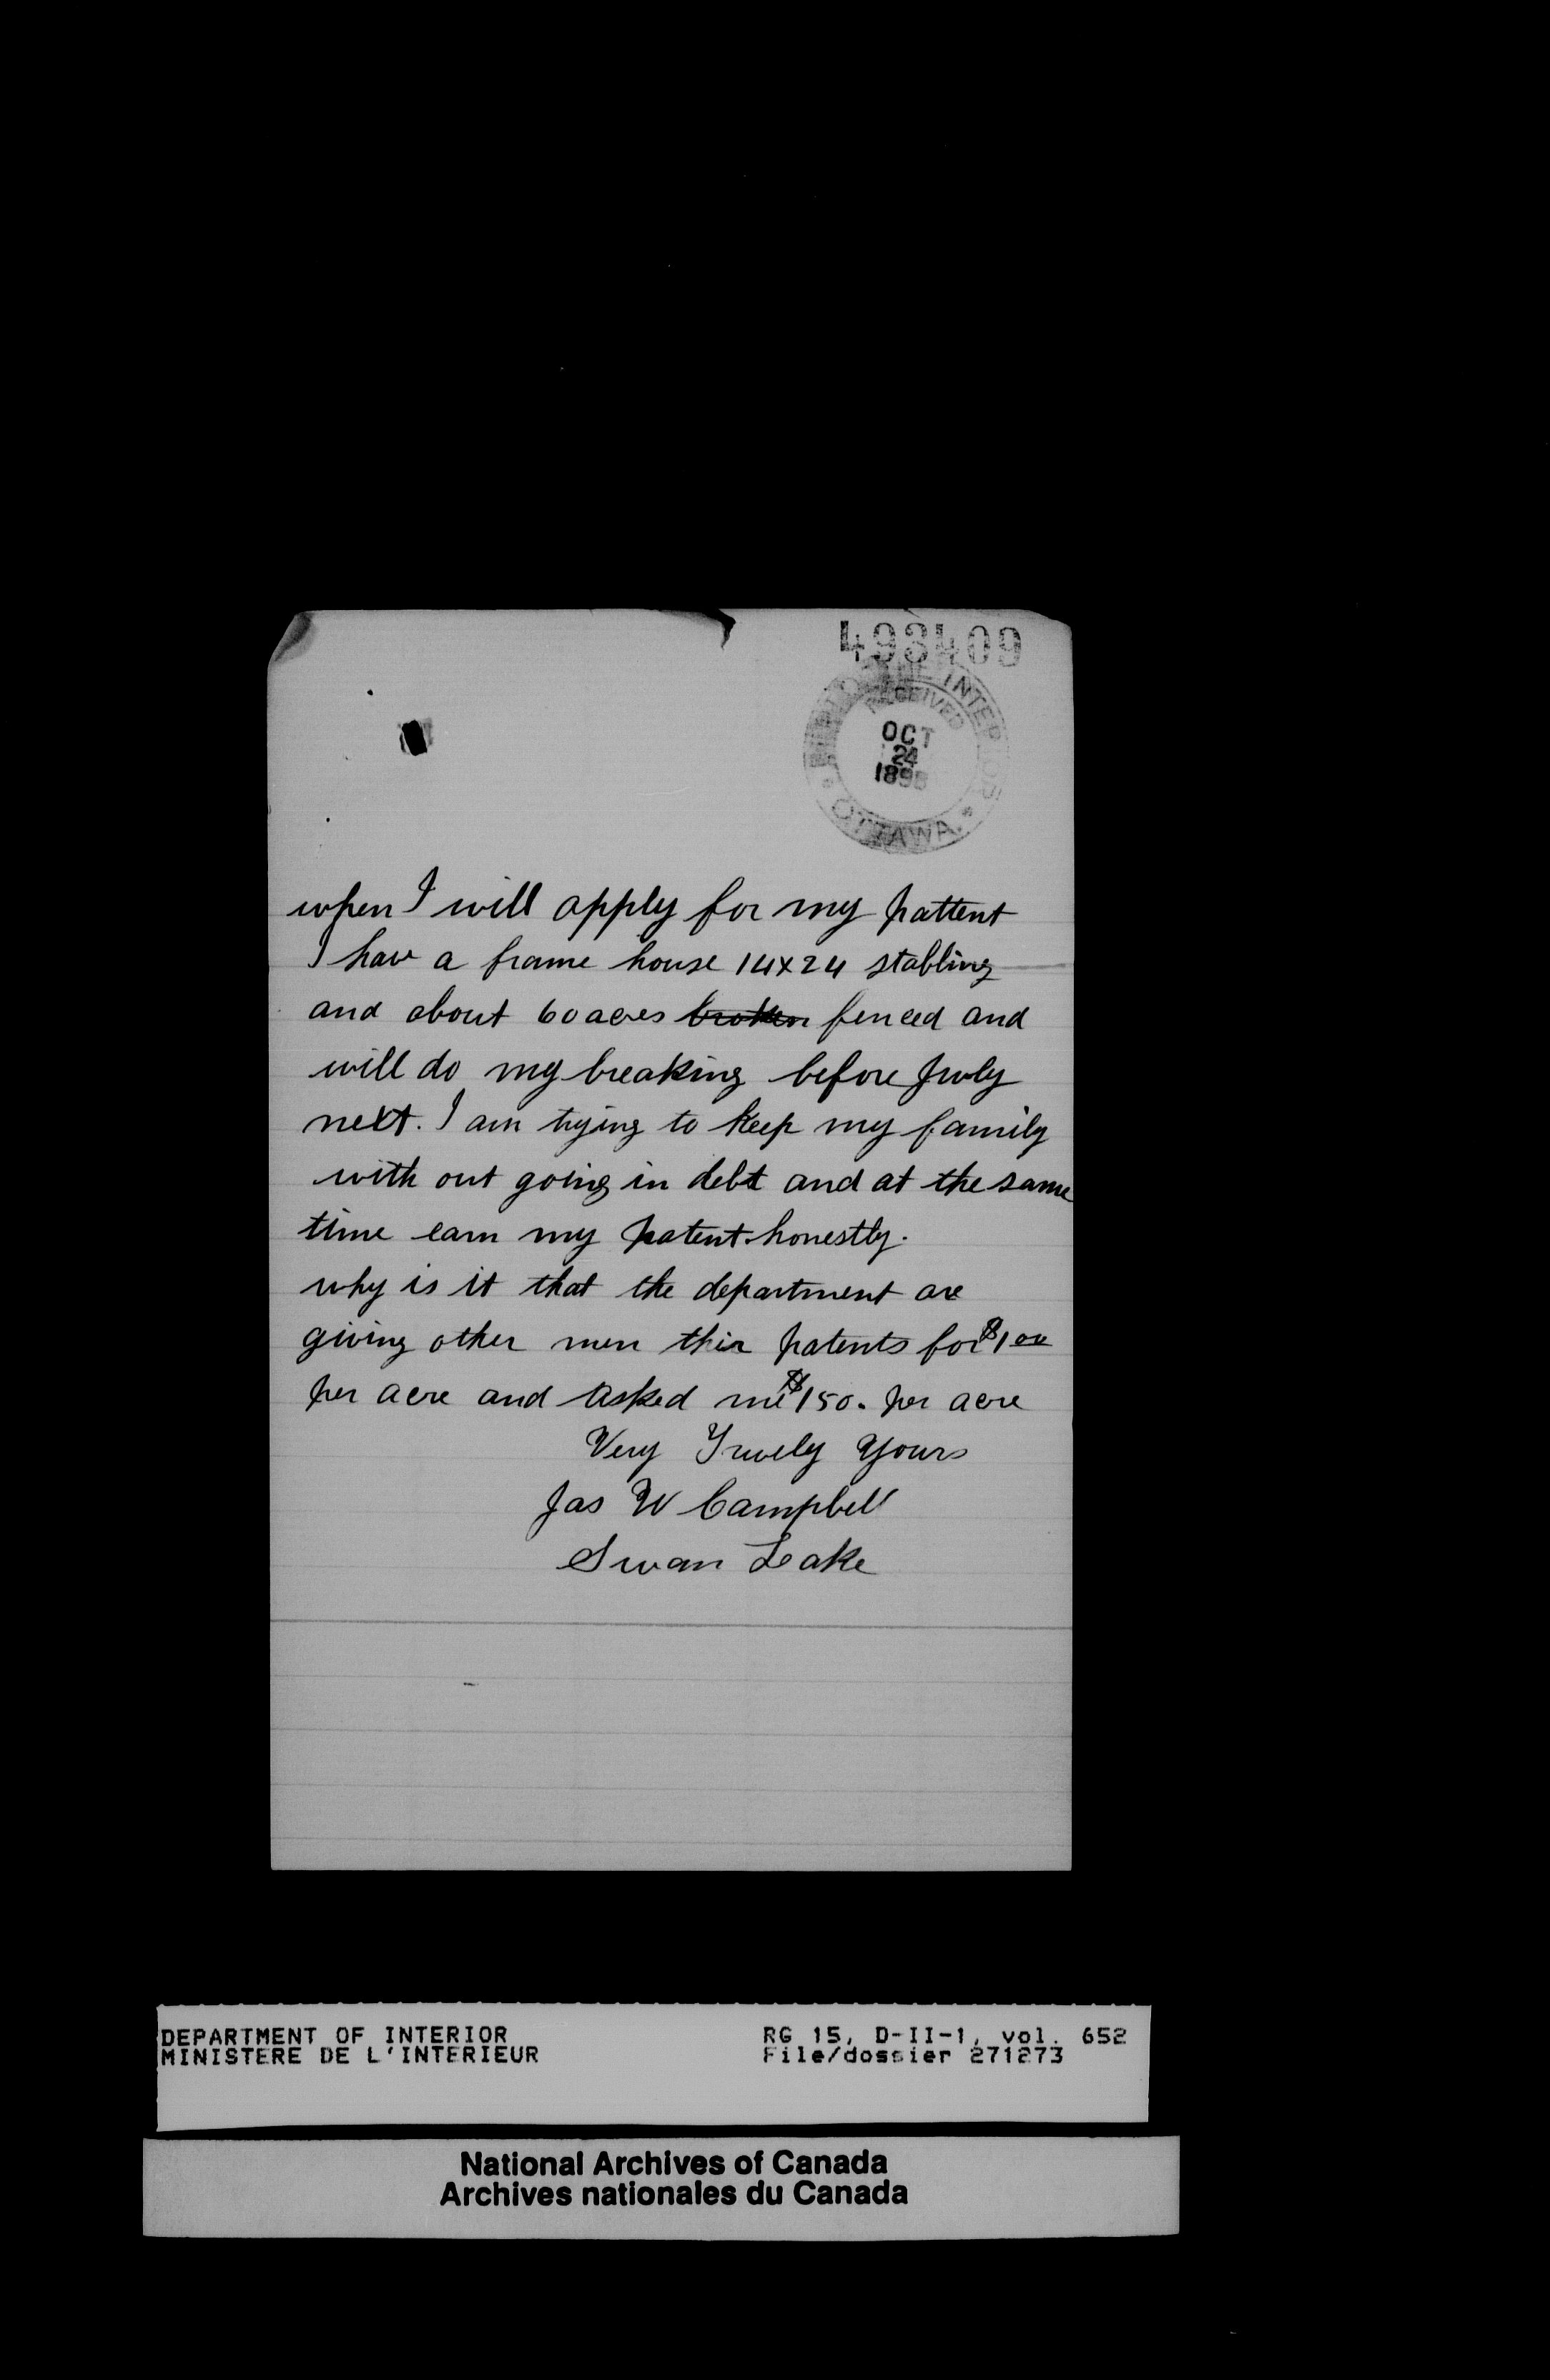 493409
DEPT OF THE INTERIOR
RECEIVED
OCT
24
189
OTTAWA
when I will apply for my pattent
I hav a frame house 14x24 stabling
and about 60 acres broken fenced and
will do my breaking before July
next. I am trying to keep my family
with out going in debt and at the same
time earn my patent honestly.
why is it that the department are
giving other men thir patents for $1 00
per acre and asked me $150. per acre
Very Truely Yours
Jas W Campbell
Swan Leake
DEPARTMENT OF INTERIOR RG 15, D-II-1, vol. 652
MINISTERE DE L'INTERIEUR File/dossier 271273
National Archives of Canada
Archives nationales du Canada